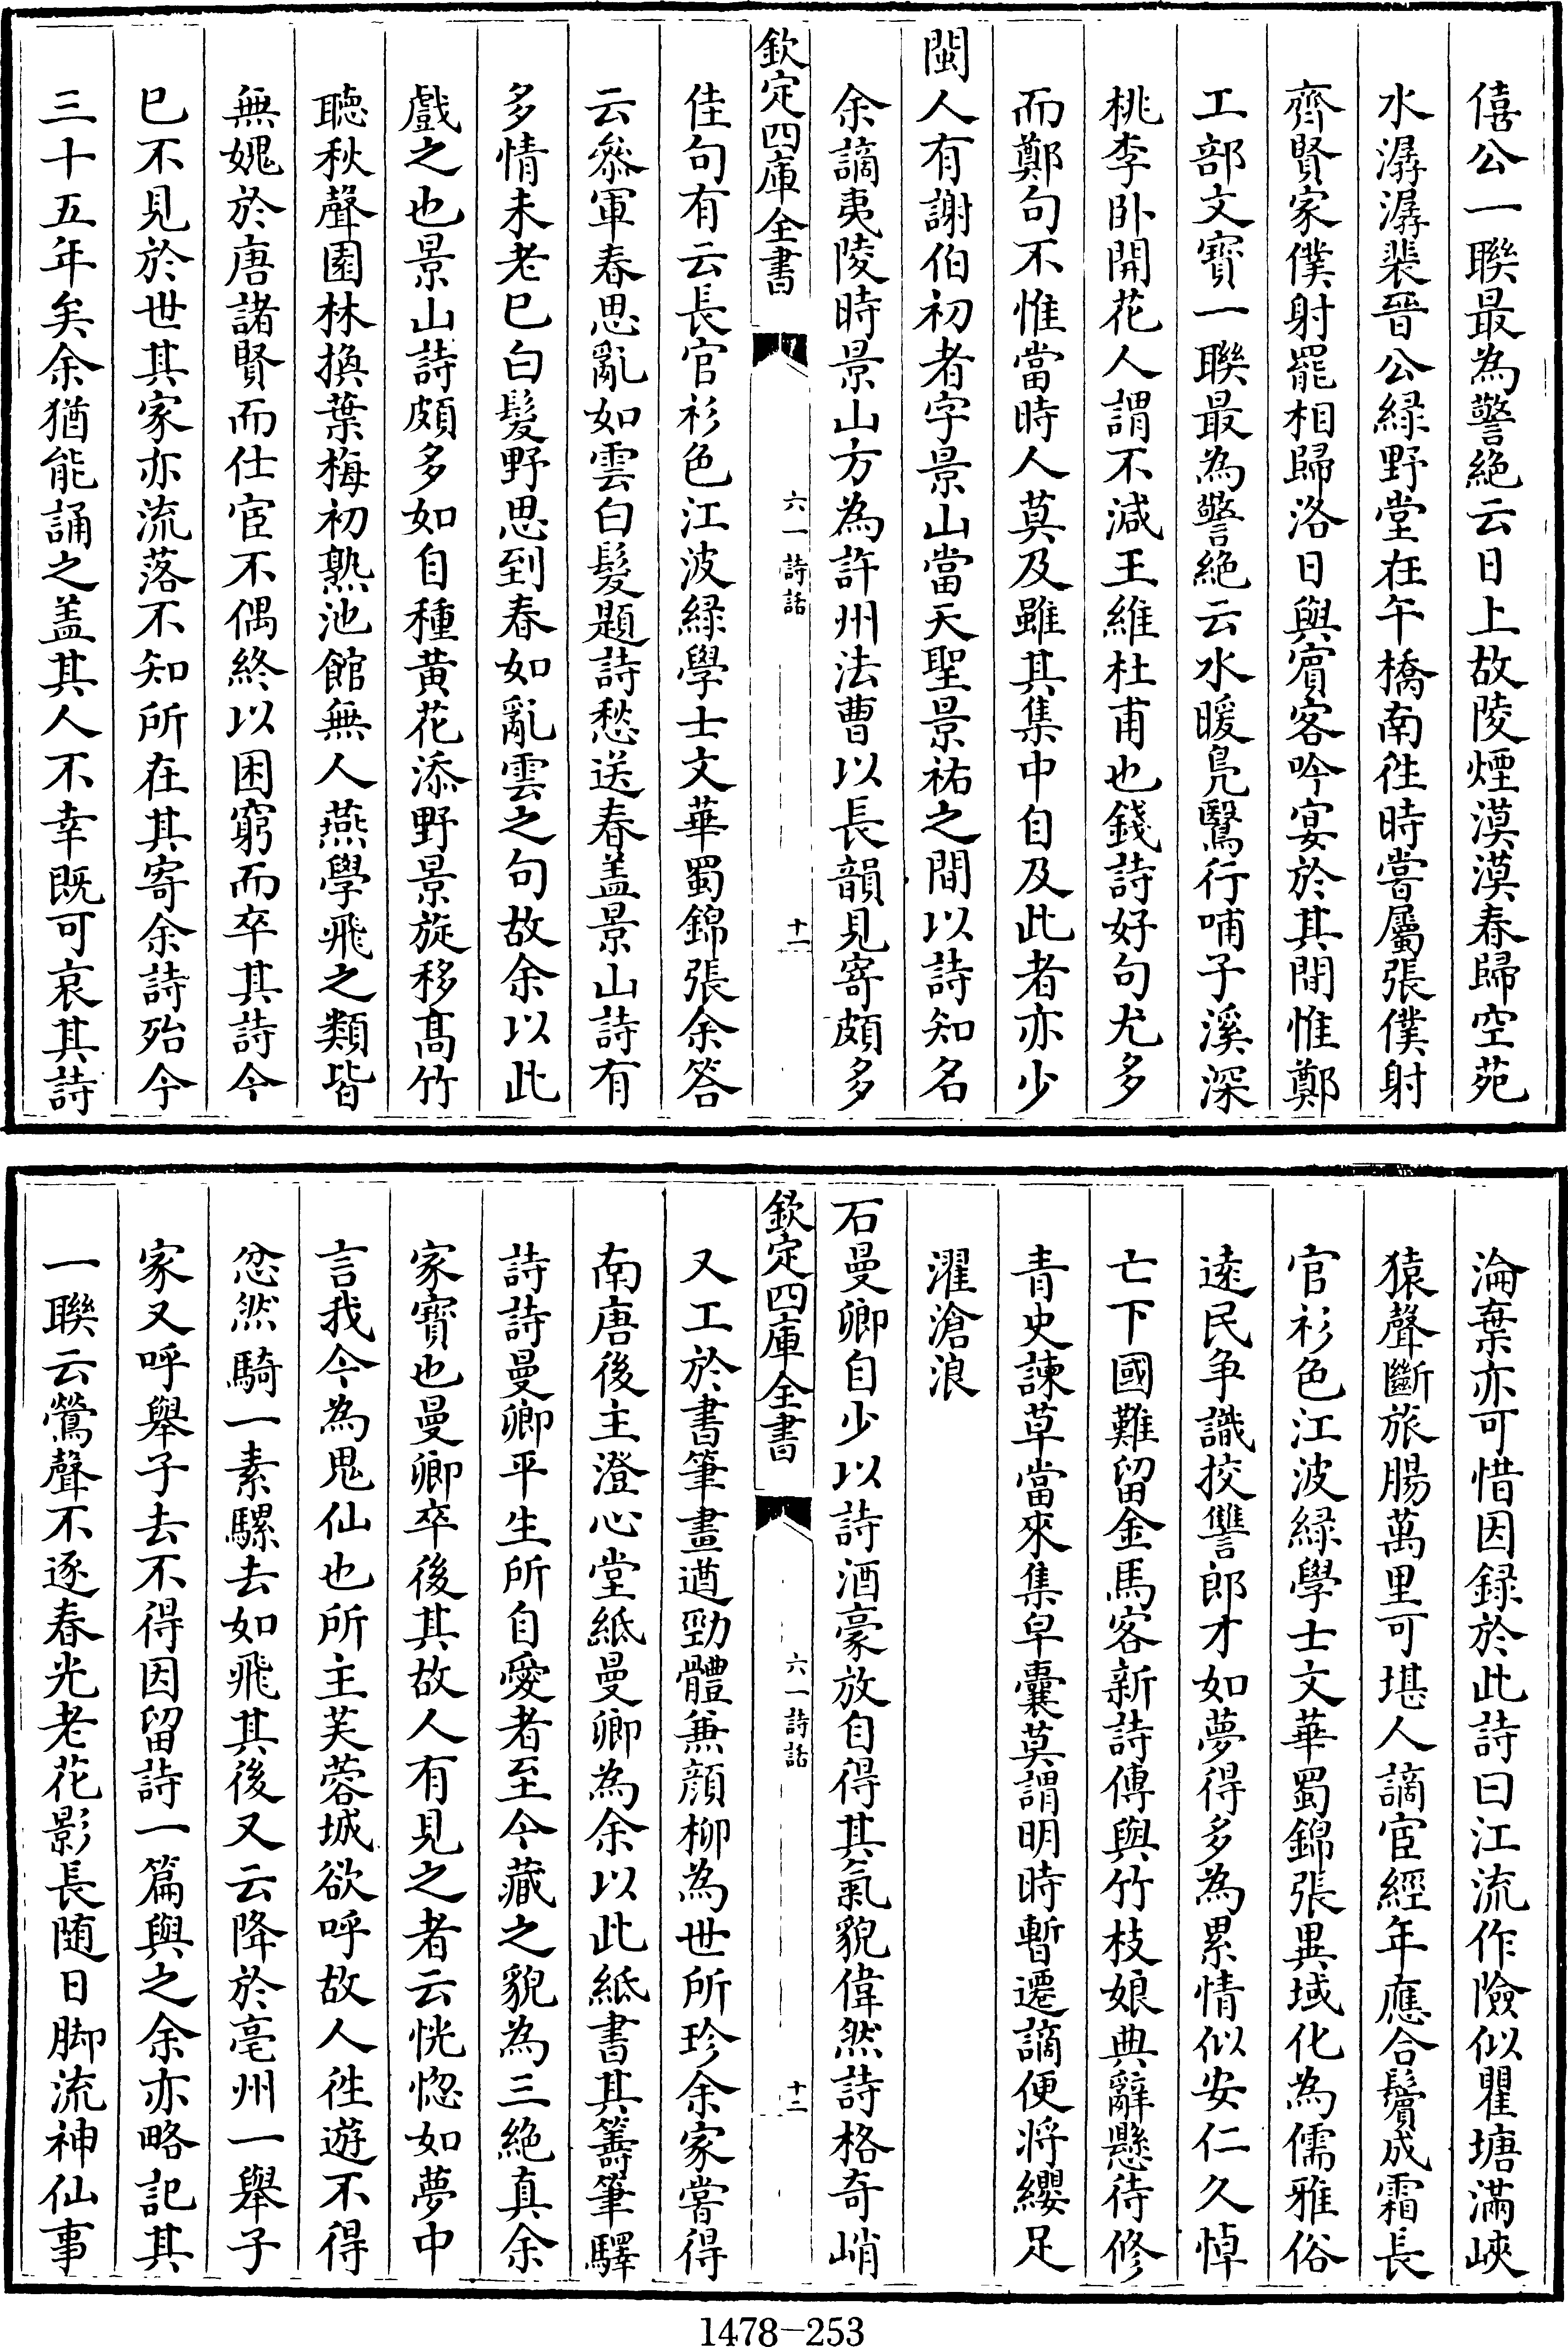 僖公一聯最為警絶云日上故陵煙漠漠春歸空苑
水潺潺裴晉公緑野堂在午橋南徃時嘗屬張僕射
齊賢家僕射罷相歸洛日與賓客吟宴於其間惟鄭
工部文寳一聯最為警絶云水暖鳧鷖行哺子溪深
桃李卧開花人謂不減王維杜甫也錢詩好句尤多
而鄭句不惟當時人莫及雖其集中自及此者亦少
閩人有謝伯初者字景山當天聖景祐之間以詩知名
余謫夷陵時景山方為許州法曹以長韻見寄頗多
欽定四庫全書
六一詩話
十一
佳句有云長官衫色江波緑學士文華蜀錦張余答
云叅軍春思亂如雲白髮題詩愁送春盖景山詩有
多情未老已白髮野思到春如亂雲之句故余以此
戲之也景山詩頗多如自種黄花添野景旋移髙竹
聽秋聲園林換葉梅初熟池館無人燕學飛之類皆
無媿於唐諸賢而仕宦不偶終以困窮而卒其詩今
已不見於世其家亦流落不知所在其寄余詩殆今
三十五年矣余猶能誦之盖其人不幸既可哀其詩
淪棄亦可惜因録於此詩曰江流作險似瞿塘滿峽
猿聲斷旅腸萬里可堪人謫宦經年應合鬢成霜長
官衫色江波緑學士文華蜀錦張異域化為儒雅俗
逺民争識挍讐郎才如夢得多為累情似安仁久悼
亡下國難留金馬客新詩傳與竹枝娘典辭懸待修
青史諫草當來集皁囊莫謂明時暫遷謫便將纓足
濯滄浪
石曼卿自少以詩酒豪放自得其氣貌偉然詩格奇峭
欽定四庫全書
六一詩話
十二
又工於書筆畫遒勁體兼顔柳為世所珍余家嘗得
南唐後主澄心堂紙曼卿為余以此紙書其籌筆驛
詩詩曼卿平生所自愛者至今藏之貌為三絶真余
家寳也曼卿卒後其故人有見之者云恍惚如夢中
言我今為鬼仙也所主芙蓉城欲呼故人徃遊不得
忿然騎一素騾去如飛其後又云降於亳州一舉子
家又呼舉子去不得因留詩一篇與之余亦略記其
一聯云鶯聲不逐春光老花影長隨日脚流神仙事
1478-253